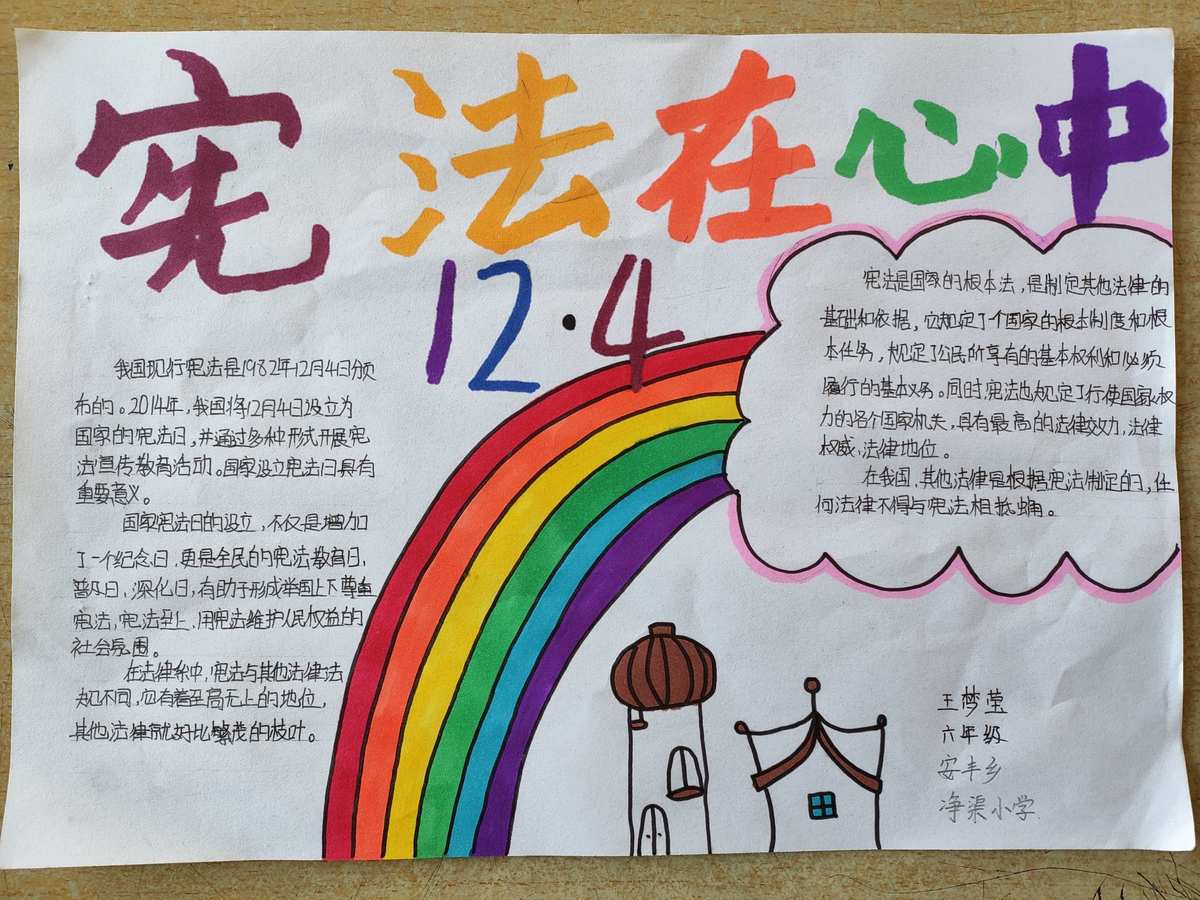 宪法在心中
12·4
我国现行宪法是1982年12月4日颁
布的。2014年,我国将12月4日设立为
国家的宪法日,并通过多种形式开展宪
法宣传教育活动。国家设立宪法日具有
重要意义。
国家宪法日的设立,不仅是增加
了一个纪念日,更是全民的宪法教育日,
普及日,深化日,有助于形成举国上下尊重
宪法,宪法至上,用宪法维护人民权益的
社会氛围。
在法律系中,宪法与其他法律法
规不同,它有着至高无上的地位,
其他法律就好比繁茂的枝叶。
宪法是国家的根本法,是制定其他法律的
基础和依据,它规定了个国家的根本制度和根
本任务,规定了公民所享有的基本权利和必须
履行的基本义务。同时宪法也规定了行使国家权
力的各个国家机关,具有最高的法律效力,法律
权威,法律地位。
在我国,其他法律是根据宪法制定的,任
何法律不得与宪法相抵触。
王梦莹
六年级
安丰乡
净渠小学